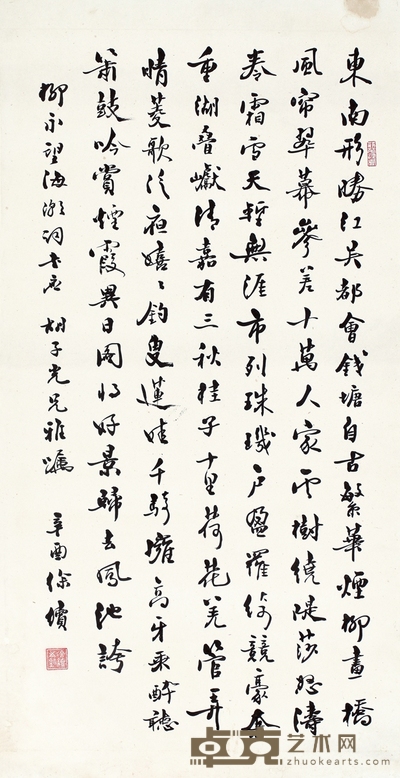 東南形勝江吳都會錢塘自古繁華煙柳畫橋
風帘翠幕參差十萬人家雲樹繞隄莎怒濤
卷霜雪天塹無涯市列珠璣戶盈羅綺競豪奢
重湖疊巘清嘉有三秋桂子十里荷花羌管弄
晴菱歌泛夜嬉〻釣叟蓮娃千騎擁高牙乘醉聽
簫鼓吟賞煙霞異日圖將好景歸去鳳池誇
柳永望海潮詞書應 胡子光兄雅囑 辛酉徐續
卓克艺术网
zhuokearts.com